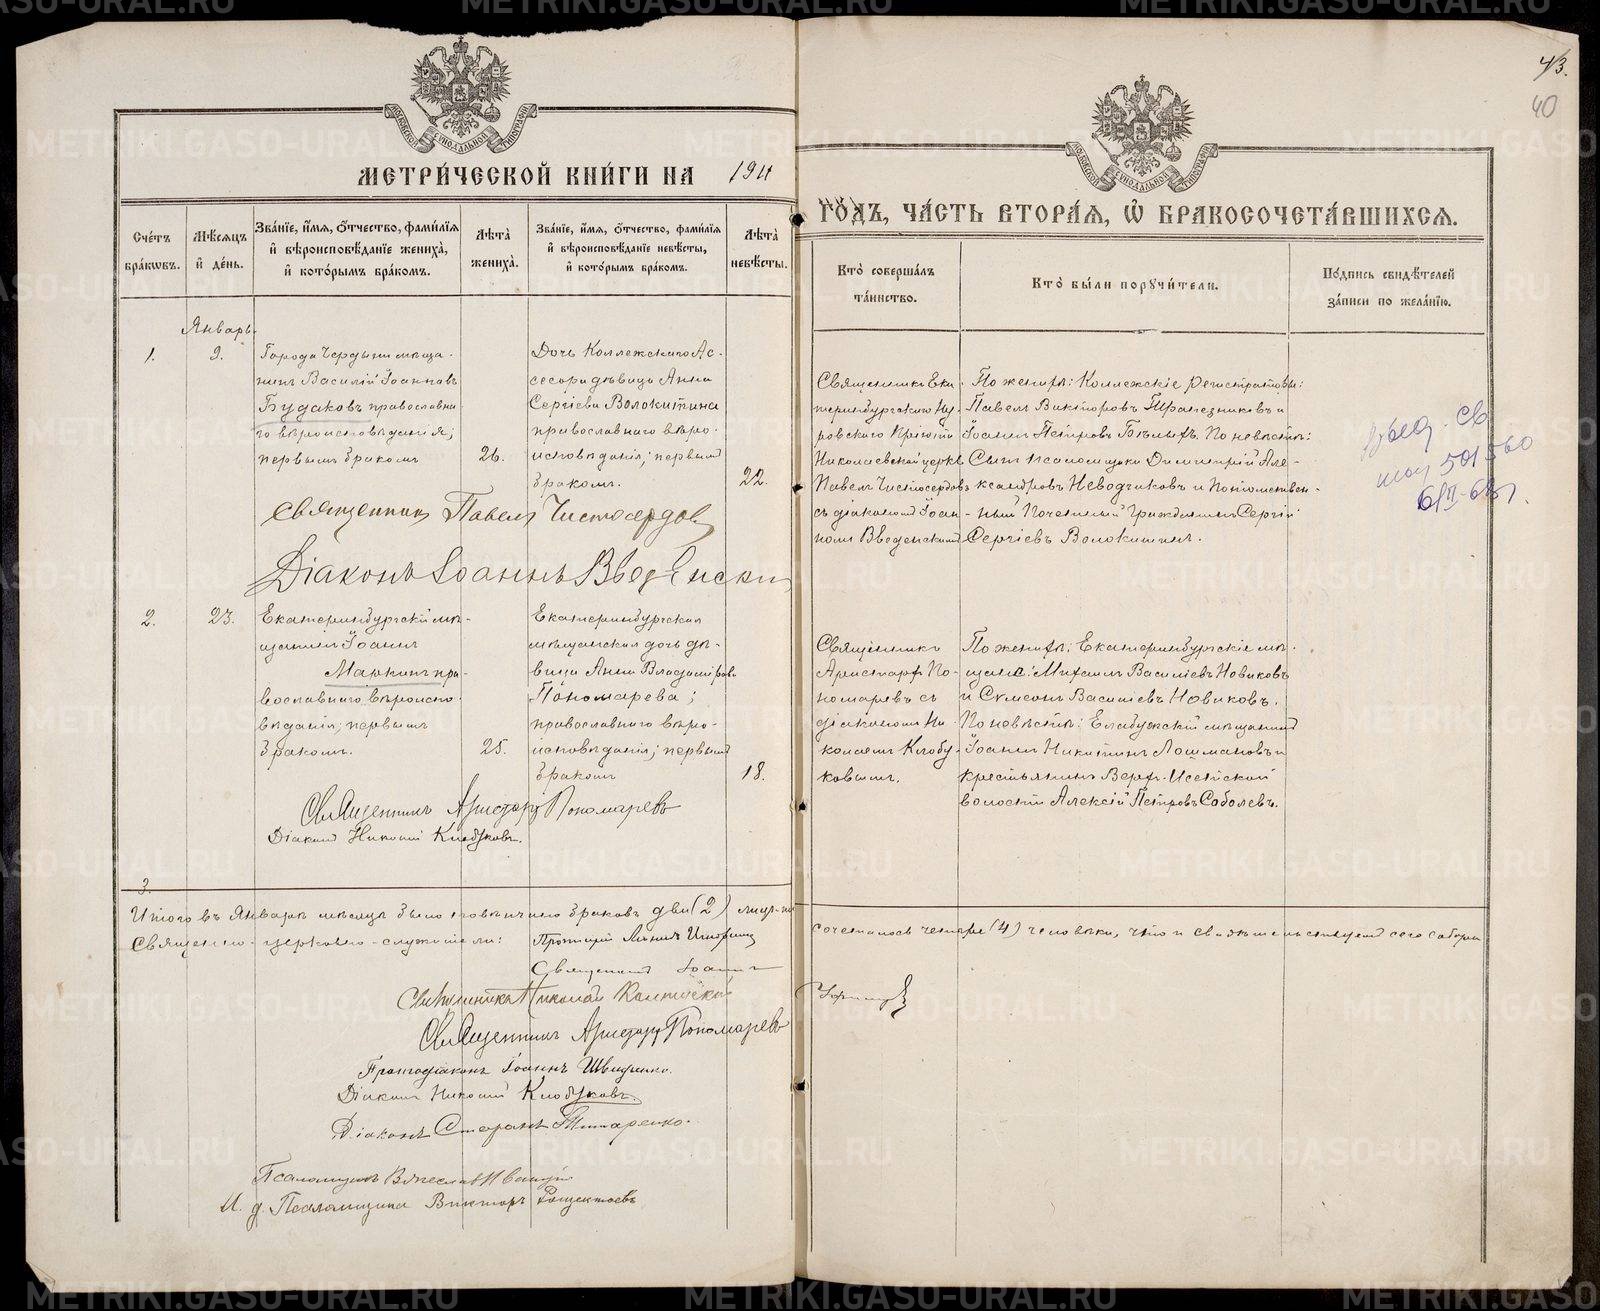 43.
40
МОСКОВСКОЙ СѴНОДАЛЬНОЙ ТИПОГРАФІИ
МОСКОВСКОЙ СѴНОДАЛЬНОЙ ТИПОГРАФІИ
МЕТРИ́ЧЕСКОЙ КНИ́ГИ НА 1911
ГО́ДЪ, ЧА́СТЬ ВТОРА́Я, Ѡ҆ БРАКОСОЧЕТА́ВШИХСЯ.
Сче́тъ бра́кѡвъ.
Мѣ́сяцъ и҆ де́нь.
Зва́нїе, и҆́мя, ѻ҆́тчество, фами́лїя и҆ вѣроисповѣ́данїе жениха̀, и҆ кото́рымъ бра́комъ.
Лѣ́та жениха̀.
Зва́нїе, и҆́мя, ѻ҆́тчество, фами́лїя и҆ вѣроисповѣ́данїе невѣ́сты, и҆ кото́рымъ бра́комъ.
Лѣ́та невѣ́сты.
Кто̀ соверша́лъ та́инство.
Кто̀ бы́ли порꙋчи́тели.
По́дпись свидѣ́телей за́писи по жела́нїю.
Январь.
1.
9.
Города Чердыни мѣща-
нинъ Василій Іоанновъ
Будаковъ православна-
го вѣроисповѣданія;
первымъ бракомъ
26.
Дочь Коллежскаго Ас-
сесора дѣвица Анна
Сергіева Волокитина
православнаго вѣро-
исповѣданія; первымъ
бракомъ.
22.
Священникъ Ека-
теринбургскаго Ну-
ровскаго Пріюта
Николаевской церкв
Павелъ Чистосердовъ
съ діакономъ Іоан-
номъ Введенскимъ
По женихѣ: Коллежскіе Регистраторы:
Павелъ Викторовъ Трапезниковъ и
Іоаннъ Петровъ Бѣлыхъ. По невѣстѣ:
Сынъ псаломщика Димитрій Але-
ксандровъ Неводчиковъ и Потомствен-
ный Почетный Гражданинъ Сергій
Сергіевъ Волокитинъ.
Священникъ Павелъ Чистосердовъ
Діаконъ Іоаннъ Введенскій
2.
23.
Екатеринбургскій мѣ-
щанинъ Іоаннъ
Маркинъ пра-
вославнаго вѣроиспо-
вѣданія; первымъ
бракомъ.
25.
Екатеринбургская
мѣщанская дочь дѣ-
вица Анна Владимірова
Пономарева;
православнаго вѣро-
исповѣданія; первымъ
бракомъ
18.
Священникъ
Аристархъ По-
номаревъ съ
діакономъ Ни-
колаемъ Клобу-
ковымъ.
По женихѣ: Екатеринбургскіе мѣ-
щане: Михаилъ Василіевъ Новиковъ
и Симеонъ Василіевъ Новиковъ.
По невѣстѣ: Елабужскій мѣщанинъ
Іоаннъ Никитинъ Лошмановъ и
крестьянинъ Верхъ-Исетской
волости Алексій Петровъ Соболевъ.
Священникъ Аристархъ Пономаревъ
Діаконъ Николай Клобуковъ.
3.
Итого въ Январѣ мѣсяцѣ было повѣнчано браковъ два (2) лицъ-же
сочеталось четыре (4) человѣка, что и свидѣтельствуемъ сего собора
Священно-церковно-служители:
Священникъ Іоаннъ
Священникъ Николай
Священникъ Аристархъ Пономаревъ
Протодіаконъ Іоаннъ
Діаконъ Николай Клобуковъ.
Діаконъ Стефанъ Титаренко.
Псаломщикъ Вячеславъ
И. д. Псаломщика Викторъ
METRIKI.GASO-URAL.RU